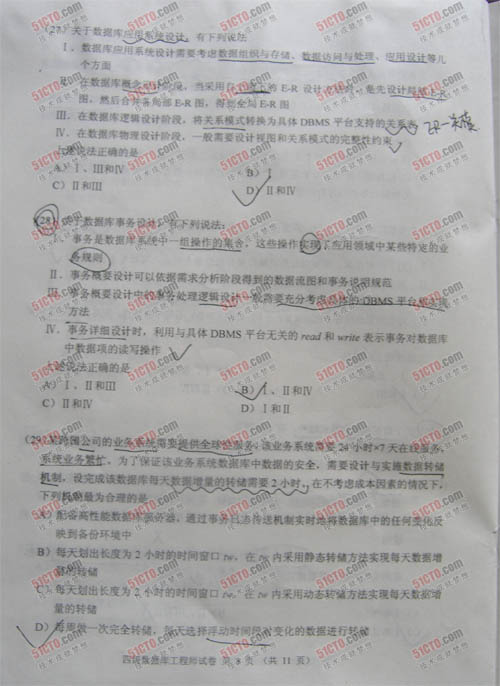 (27) 关于数据库应用系统设计，有下列说法
Ⅰ．数据库应用系统设计需要考虑数据组织与存储、数据访问与处理、应用设计等几
个方面
Ⅱ．在数据库概念设计阶段，当采用自 的 E-R 设计方法时，是先设计局部E-R
图，然后合并各局部 E-R 图，得到全局 E-R 图
Ⅲ．在数据库逻辑设计阶段，将关系模式转换为具体 DBMS 平台支持的关系表
Ⅳ．在数据库物理设计阶段，一般需要设计视图和关系模式的完整性约束
上述说法正确的是
A) Ⅰ、Ⅲ和Ⅳ B) Ⅰ
C) Ⅱ和Ⅲ D) Ⅱ和Ⅳ
(28) 关于数据库事务设计，有下列说法：
事务是数据库系统中一组操作的集合，这些操作实现了应用领域中某些特定的业
务规则
Ⅱ．事务概要设计可以依据需求分析阶段得到的数据流图和事务说明规范
Ⅲ．事务概要设计中的事务处理逻辑设计一般需要充分考虑具体的 DBMS 平台和实现
方法
Ⅳ．事务详细设计时，利用与具体 DBMS 平台无关的 read 和 write 表示事务对数据库
中数据项的读写操作
上述说法正确的是
A) Ⅰ、Ⅱ和Ⅲ B) Ⅰ、Ⅱ和Ⅳ
C) Ⅱ和Ⅳ D) Ⅰ和Ⅱ
(29) 某跨国公司的业务系统需要提供全球性服务，该业务系统需要 24 小时×7 天在线服务，
系统业务繁忙。为了保证该业务系统数据库中数据的安全，需要设计与实施数据转储
机制，设完成该数据库每天数据增量的转储需要 2 小时，在不考虑成本因素的情况下，
下列机制最为合理的是
A) 配备高性能数据库服务器，通过事务日志传送机制实时地将数据库中的任何变化反
映到备份环境中
B) 每天划出长度为 2 小时的时间窗口 tw，在 tw 内采用静态转储方法实现每天数据增
量的转储
C) 每天划出长度为 2 小时的时间窗口 tw，在 tw 内采用动态转储方法实现每天数据增
量的转储
D) 每周做一次完全转储，每天选择浮动时间段对变化的数据进行转储
四级数据库工程师试卷 第 8 页 （共 11 页）